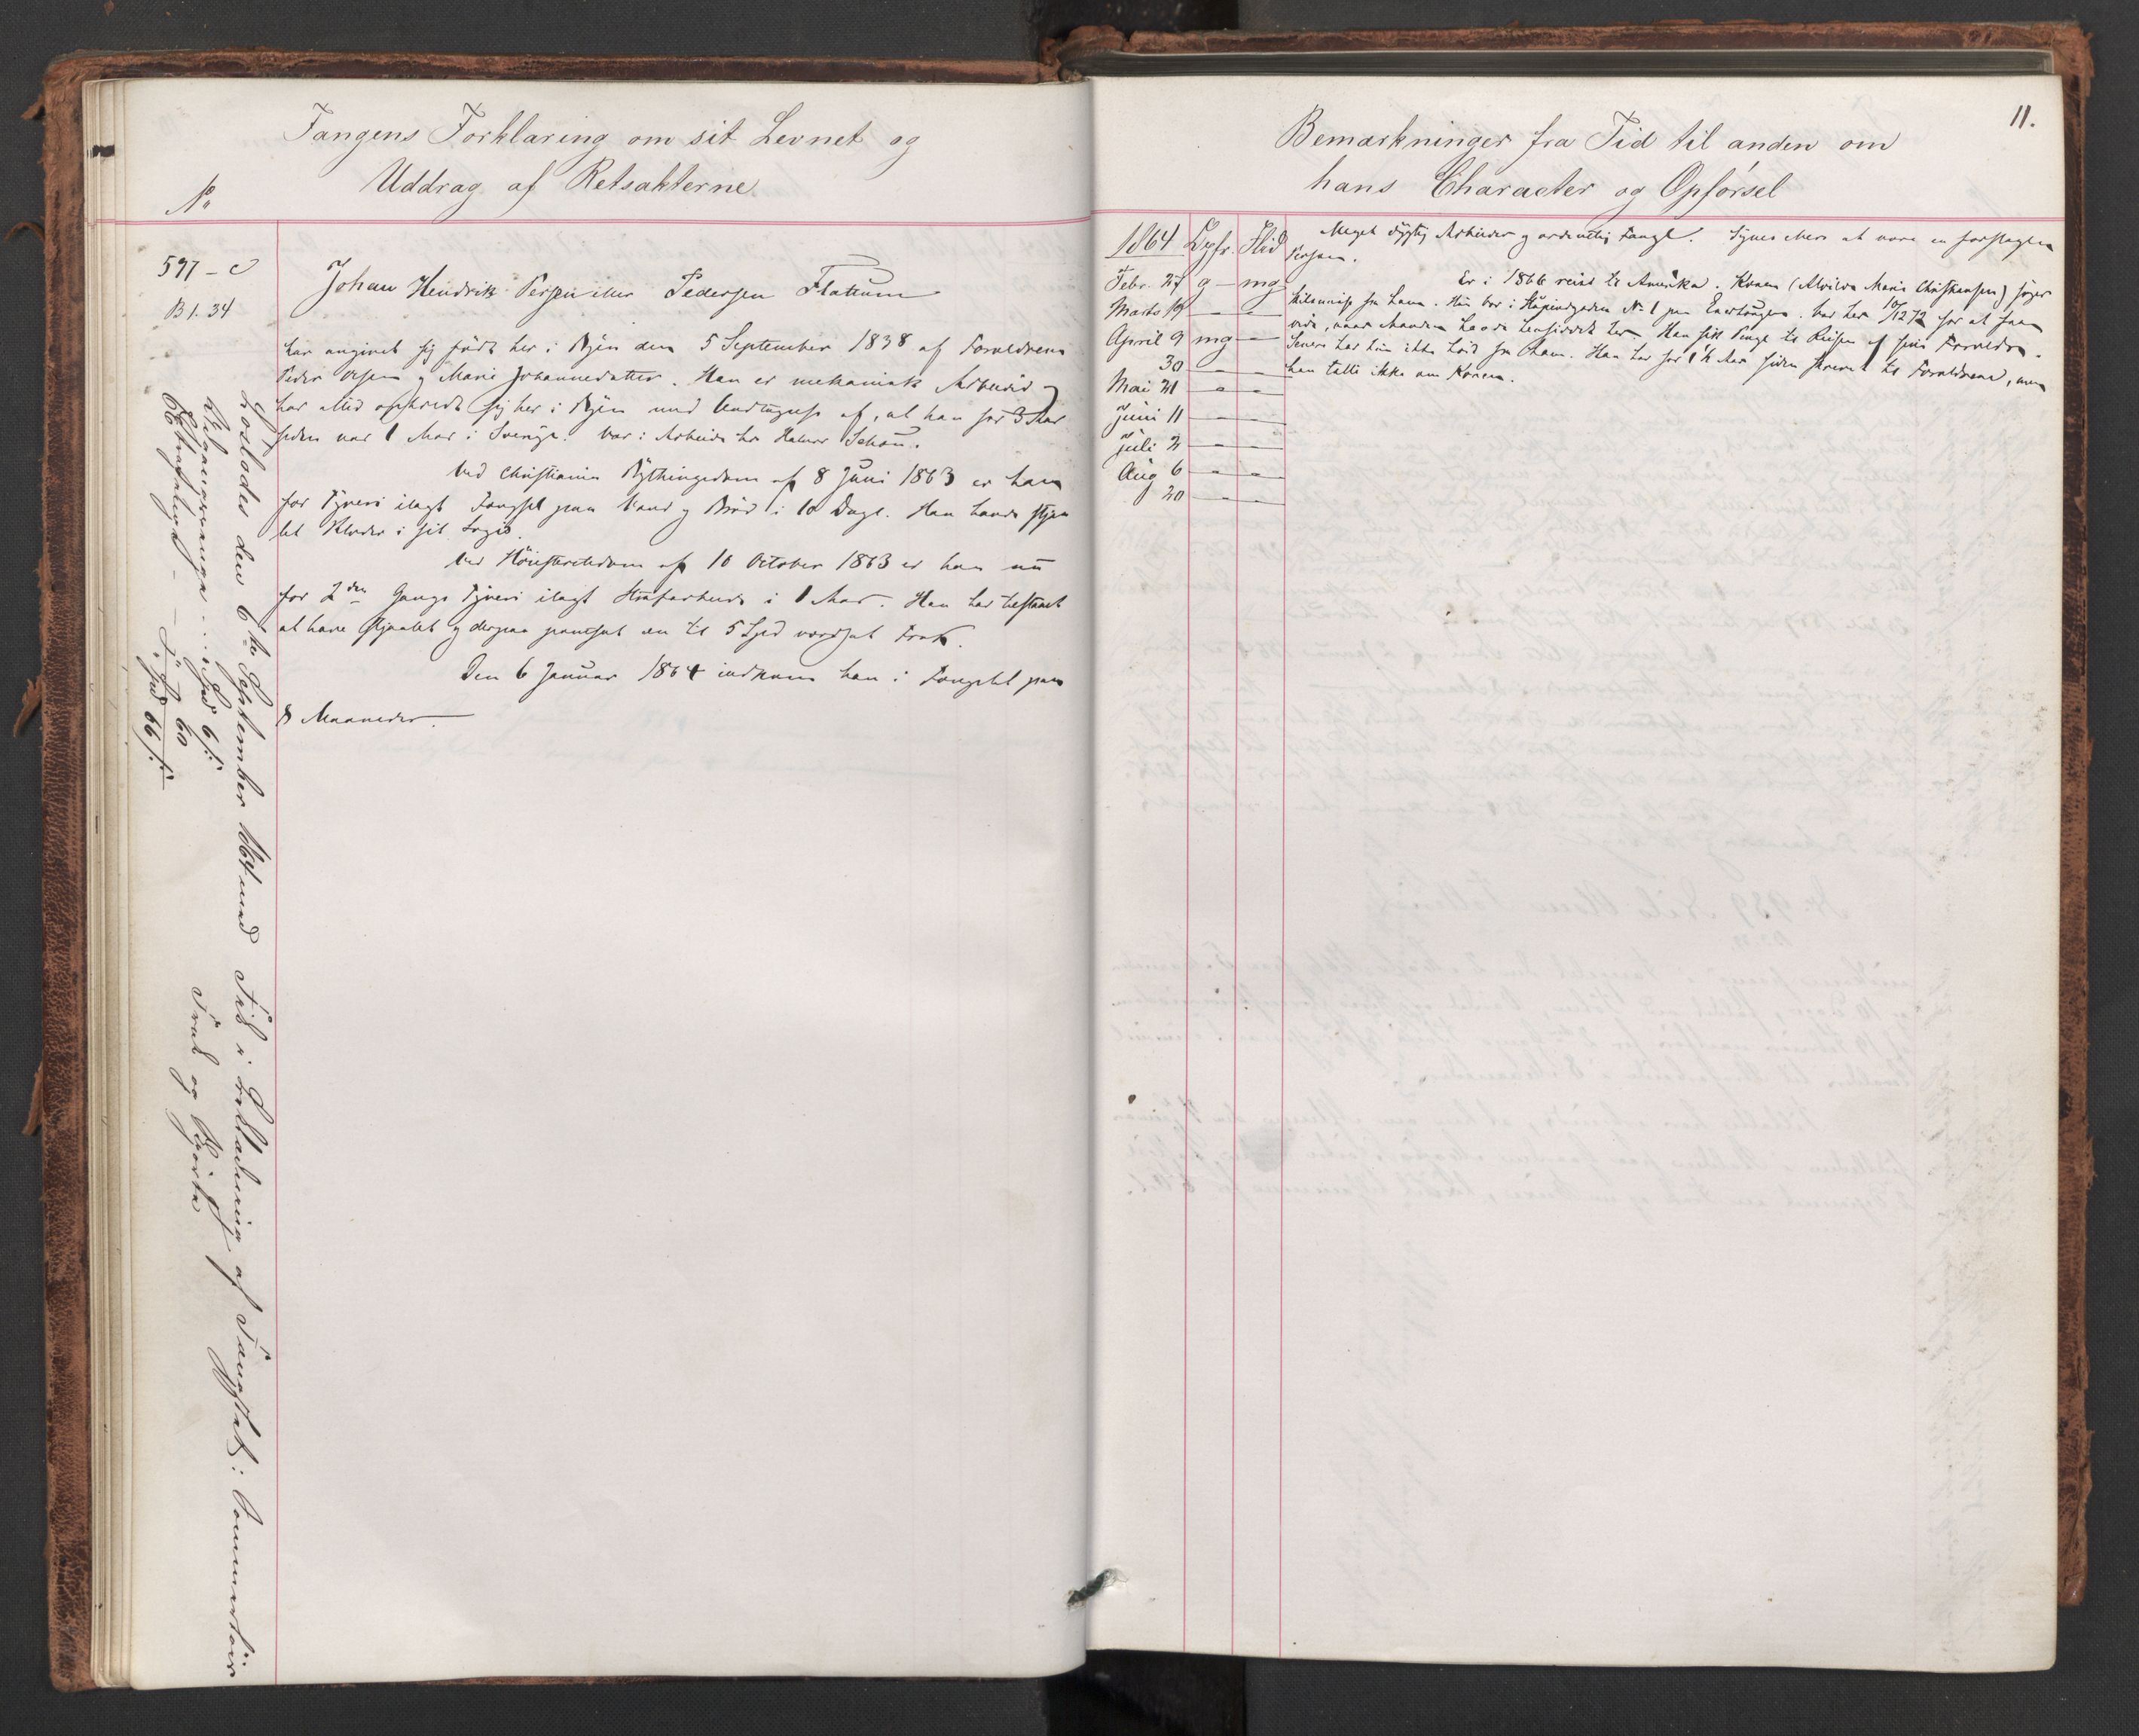 Fangens Forklaring om sit Levnet og
Uddrag af Retsakterne
No
597 - c
B 1. 34
Johan Hendrik Persen eller Pedersen Flattum
har angivet sig født her i Byen den 5 September 1838 af Forældrene
Peder Olsen og Marie Johannesdatter. Han er mekanisk Arbeider
har altid opholdt sig her i Byen med Undtagelse af, at han for 3 Aar
siden var 1 Aar i Sverige. Var i Arbeide hos Schou.
Ved Christiania Bythingsdom af 8 Juni 1863 er han
for Tyveri ilagt Fængsel paa Vand og Brød i 10 Dage. Han havde stjaa
let Klæder i sit Logis.
Ved Høiesteretsdom af 10 October 1863 er han nu
for 2den Gangs Tyveri ilagt Strafarbeide i 1 Aar. Han har tilstaaet
at have stjaalet og derpaa pantsat en til 5 Spd værdsat Frak.
Den 6 Januar 1864 indkom han i Fængslet paa
8 Maaneder.
Løslades den 6te September 1864 med Tid i Helladering af Fangstak:
Frak og Skjorte
Spd 6 /:
60
Spd 66 /:
11.
Bemærkninger fra Tid til anden om
hans Character og Opførsel
1864 Opfr. Flid
Febr. 27 g - mg
Marts 19 - -
April 9 mg -
30 - -
Mai 21 - -
Juni 11 - -
Juli 2 - -
Aug 6 - -
20 - -
Meget dygtig Arbeider og ordentlig Fange. Synes ellers at være en forslagen
Person.
Er i 1866 reist til Amerika. Konen (Alvilde Marie Christiansen) søger
Skilsmisse fra ham. Hun bor i No 1 paa Enerhaugen. Var her 10/12 72 for at faa
vide, naar Manden havde hensiddet her. Han fik Penge til Reisen af sine Forældre.
Senere har hun ikke hørt fra ham. Han har for 1 1/2 Aar siden skrevet til Forældrene, men
han talte ikke om Konen.